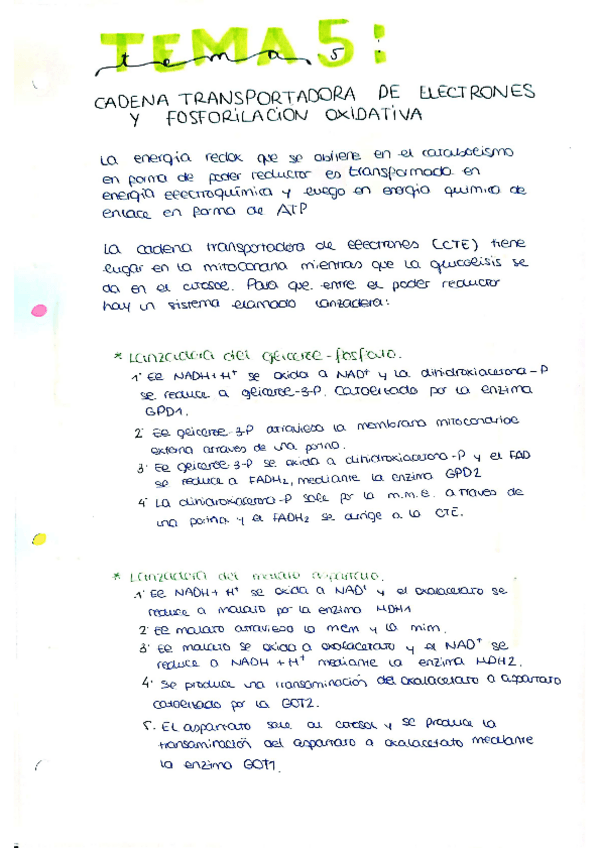 TEMA 5:
tema 5
CADENA TRANSPORTADORA DE ELECTRONES
Y FOSFORILACION OXIDATIVA
La energía redox que se obtiene en el catabolismo
en forma de poder reductor es transformada en
energía electroquímica y luego en energía química de
enlace en forma de ATP
La cadena transportadora de electrones (CTE) tiene
lugar en la mitocondria mientras que la glucolisis se
da en el citosol. Para que entre el poder reductor
hay un sistema llamado lanzadera:
* Lanzadera del glicerol-fosfato.
1· El NADH+H⁺ se oxida a NAD⁺ y la dihidroxiacetona-P
se reduce a glicerol-3-P. Catalizado por la enzima
GPD1.
2· El glicerol-3-P atraviesa la membrana mitocondrial
externa através de una porina.
3· El glicerol-3-P se oxida a dihidroxiacetona-P y el FAD
se reduce a FADH₂, mediante la enzima GPD2
4· La dihidroxiacetona-P sale por la m.m.e. a través de
una porina y el FADH₂ se dirige a la CTE.
* Lanzadera del malato aspartato.
1· El NADH + H⁺ se oxida a NAD⁺ y el oxalacetato se
reduce a malato por la enzima MDH1
2· El malato atraviesa la mem y la mim.
3· El malato se oxida a oxalacetato y el NAD⁺ se
reduce a NADH + H⁺ mediante la enzima MDH2.
4· Se produce una transaminación del oxalacetato a aspartato
catalizado por la GOT2.
5. El aspartato sale al citosol y se produce la
transaminación del aspartato a oxalacetato mediante
la enzima GOT1.